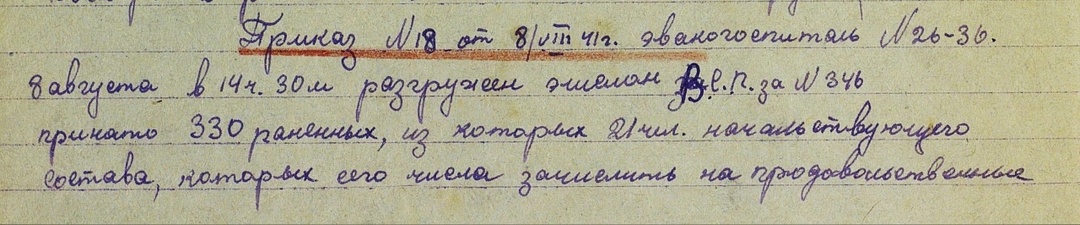 Приказ N18 от 8/VIII 41г. эвакогоспиталь N26-36.
8 августа в 14ч. 30м разгружен эшелон В.С.П. за N 346
принято 330 раненных, из которых 21 чел. начальствующего
состава, которых сего числа зачислить на продовольственные